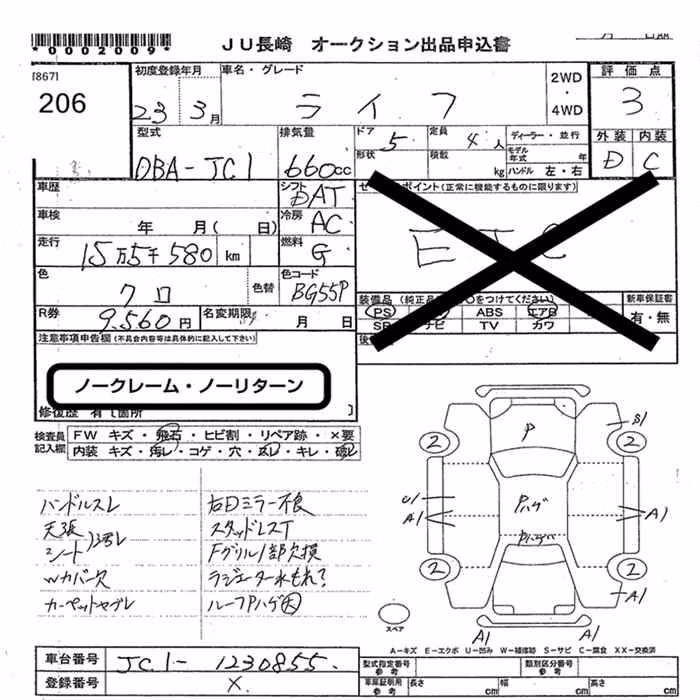 *0002009*
JU長崎 オークション出品申込書
[867]
206
初度登録年月
23 3月
車名・グレード
ライフ
2WD
・
4WD
評価点
3
外装 内装
D C
型式
DBA-JC1
排気量
660cc
ドア 5
定員 4人
形状
積数 kg
ディーラー・並行
モデル年式 年
ハンドル 左・右
車歴
シフト DAT
車検 年 月( 日)
冷房 AC
走行 15万5千580 km
燃料 G
色 クロ
色替
色コード BG55P
R券 9,560円
名変期限 月 日
ポイント(正常に機能するものに限ります)
ETC
装備品
PS ABS エアB
TV カワ
新車保証書
有・無
注意事項申告欄(不具合内容等は具体的に記入して下さい)
ノークレーム・ノーリターン
修復歴 有[箇所 ]
検査員記入欄
FW キズ・飛石・ヒビ割・リペア跡・×要
内装 キズ・汚レ・コゲ・穴・スレ・キレ・破レ
ハンドルスレ
天張
シート
ヨゴレ
Wカバー欠
カーペットヤブレ
右Dミラー不良
スタッドレスT
Fグリル1部欠損
ラジエーター水もれ?
ルーフPハゲ大
P
S1
2 2
Pハゲ
U1
A1 A1
Pハゲ
2 2
A1
A1 A1
スペア
A-キズ E-エクボ U-凹み W-補修跡 S-サビ C-腐食 XX-交換済
車台番号 JC1-1230855
登録番号 X.
型式指定番号 参考
類別区分番号 参考
車庫証明用 参考 長さ cm 幅 cm 高さ cm